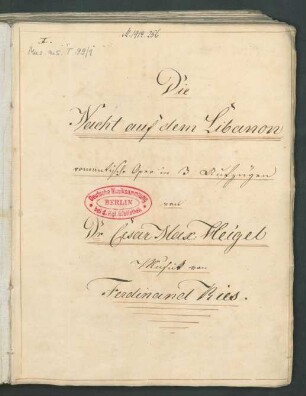 M. 1914. 256
I.
Mus. ms. F 99/1
Die
Nacht auf dem Libanon
romantische Oper in 3 Aufzügen
von
Deutsche Musiksammlung
BERLIN
bei d. Kgl. Bibliothek
Dr. Cäsar Max Heigel
Musik von
Ferdinand Ries.